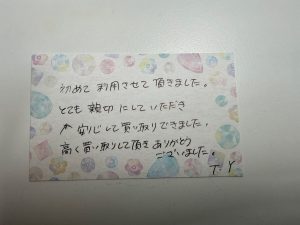 初めて利用させて頂きました。
とても親切にしていただき
安心して買い取りできました。
高く買い取りして頂きありがとう
ございました。
T.Y